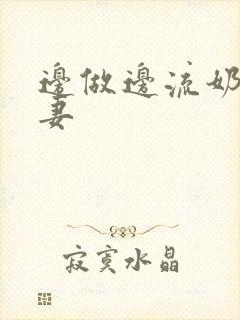 邊做邊流奶
妻
寂寞水晶